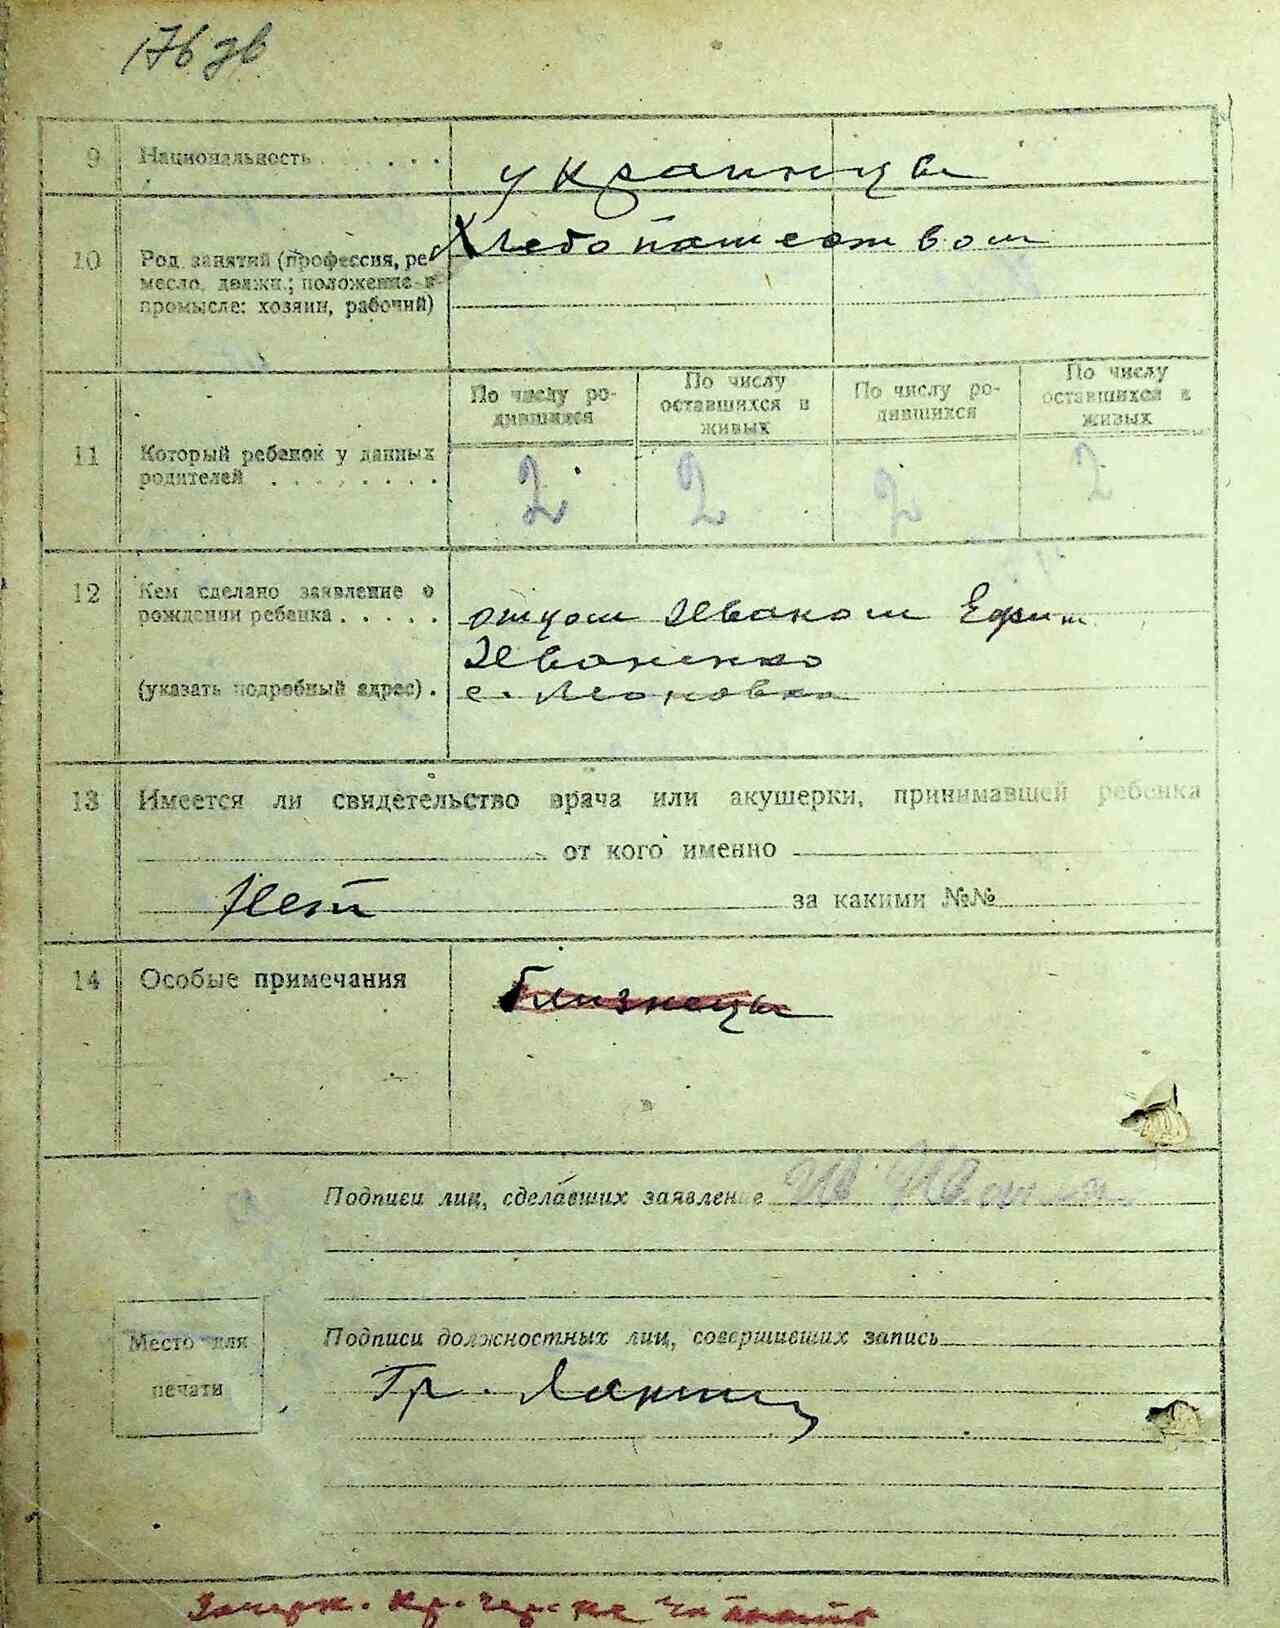 176 дв
9 Национальность . . . . украинцы
10 Род занятий (профессия, ре Хлебопашеством
месло, должн.; положение в
промысле: хозяин, рабочий)
11 Который ребенок у данных
родителей . . . . . . . .
По числу ро-
дившихся
По числу
оставшихся в
живых
По числу ро-
дившихся
По числу
оставшихся в
живых
2 2 2 2
12 Кем сделано заявление о
рождении ребенка . . . . . отцом Иваном Ефим
Иваненко
(указать подробный адрес) . с. Леоновка
13 Имеется ли свидетельство врача или акушерки, принимавшей ребенка
от кого именно
Нет за какими №№
14 Особые примечания Близнецы
Подписи лиц, сделавших заявление Ив
Место для
печати
Подписи должностных лиц, совершивших запись
Гр.
Зачерк. кр. черн. не читать